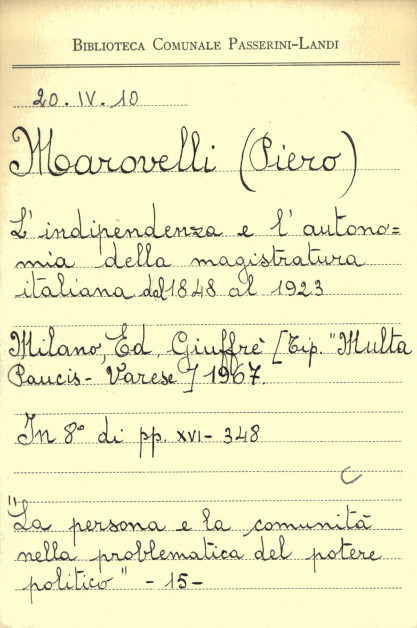 BIBLIOTECA COMUNALE PASSERINI-LANDI
20. IV. 10
Marovelli (Piero)
L'indipendenza e l'autono=
mia della magistratura
italiana dal 1848 al 1923
Milano, Ed. Giuffrè [Tip. "Multa
Paucis - Varese] 1967.
In 8° di pp. XVI - 348
"La persona e la comunità
nella problematica del potere
politico" - 15 -